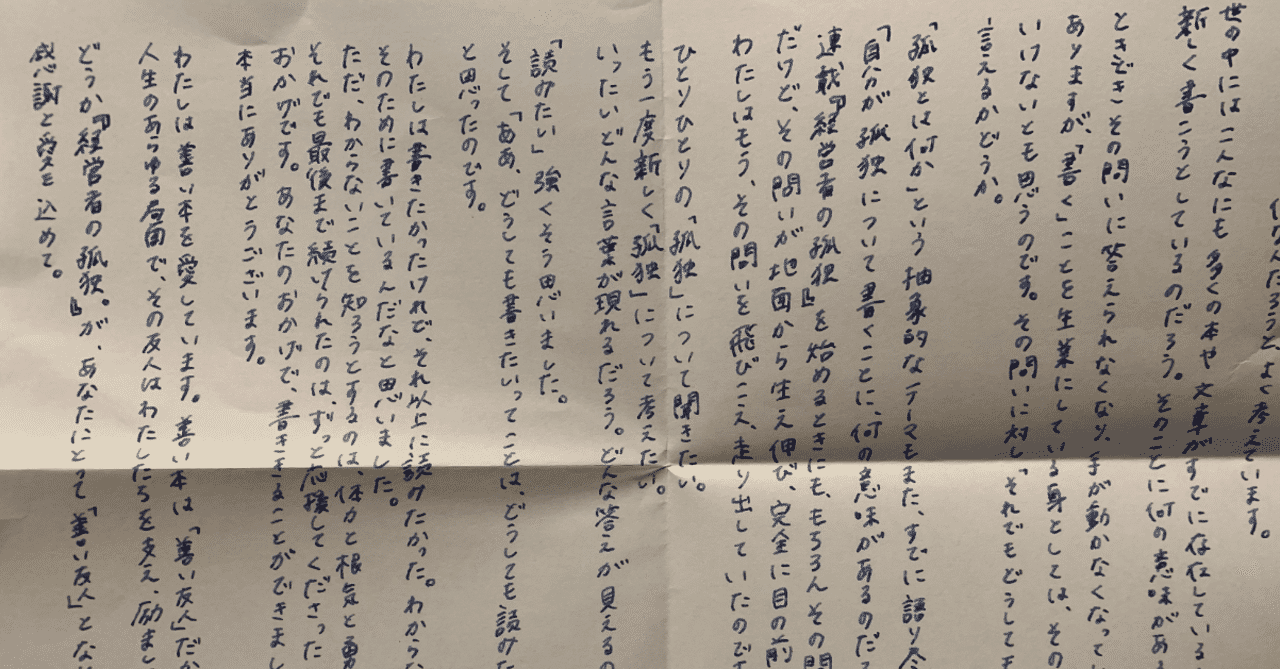 んだろうと、よく考えています。
世の中にはこんなにも多くの本や文章がすでに存在している
新しく書こうとしているのだろう。そのことに何の意味があ
ときどきその問いに答えられなくなり、手が動かなくなって
ありますが、「書く」ことを生業にしている身としては、その
いけないとも思うのです。その問いに対し「それでもどうしても
言えるかどうか。
「孤独とは何か」という抽象的なテーマもまた、すでに語り
「自分が孤独について書くことに、何の意味があるのだ
連載『経営者の孤独。』を始めるときにも、もちろんその問
だけど、その問いが地面から生え伸び、完全に目の前
わたしはもう、その問いを飛びこえ、走り出していたので
ひとりひとりの「孤独」について聞きたい。
もう一度新しく「孤独」について考えたい。
いったいどんな言葉が現れるだろう。どんな答えが見えるの
「読みたい」強くそう思いました。
そして「ああ、どうしても書きたいってことは、どうしても読みた
と思ったのです。
わたしは書きたかったけれど、それ以上に読みたかった。わからな
そのために書いているんだなと思いました。
ただ、わからないことを知ろうとするのは体力と根気と勇
それでも最後まで続けられたのはずっと応援してくださった
おかげです。あなたのおかげで、書ききることができまし
本当にありがとうございます。
わたしは善い本を愛しています。善い本は「善い友人」だか
人生のあらゆる局面で、その友人はわたしたちを支え、励まし
どうか『経営者の孤独。』が、あなたにとって「善い友人」とな
感謝と愛を込めて。